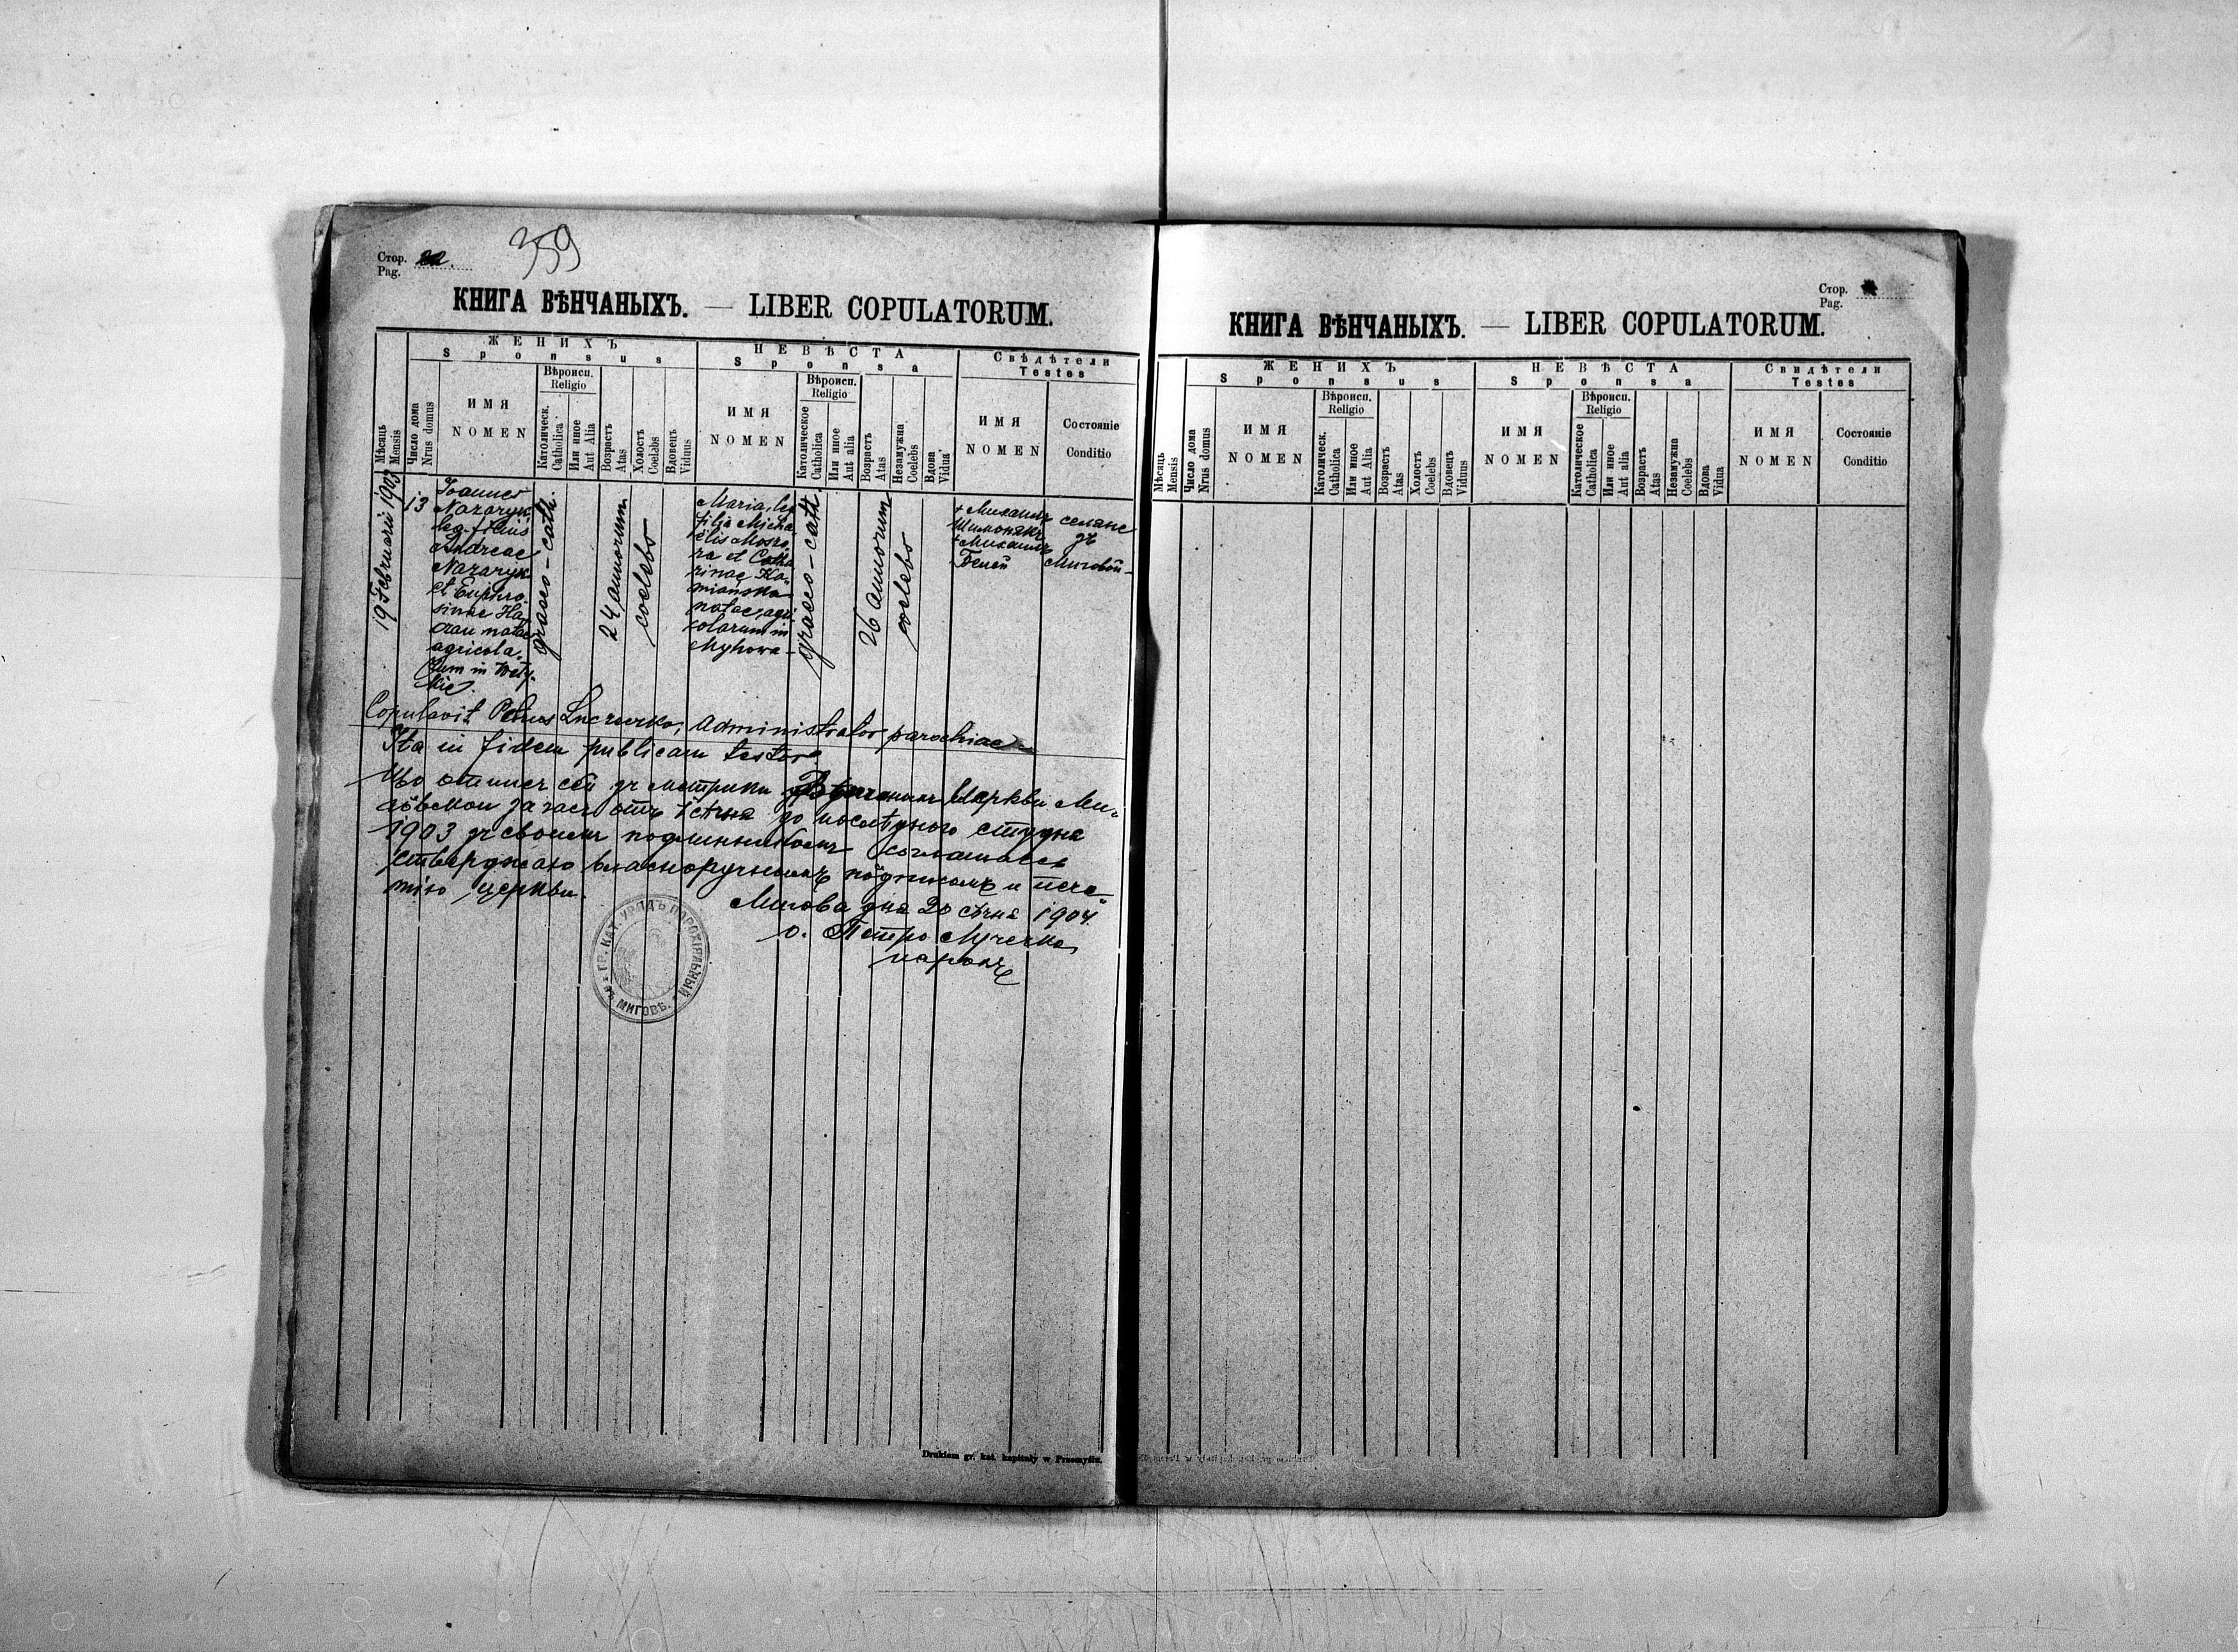 359
Стор. 22.
Pag.
КНИГА ВѢНЧАНЫХЪ. — LIBER COPULATORUM.
Мѣсяць
Mensis
Число дома
Nrus domus
ЖЕНИХЪ
Sponsus
ИМЯ
NOMEN
Вѣроисп.
Religio
Католическ.
Catholica
Или иное
Aut Alia
Возрастъ
Atas
Холостъ
Coelebs
Вдовецъ
Viduus
НЕВѢСТА
Sponsa
ИМЯ
NOMEN
Вѣроисп.
Religio
Католическое
Catholica
Или иное
Aut alia
Возрастъ
Atas
Незамужна
Coelebs
Вдова
Vidua
Свѣдѣтели
Testes
ИМЯ
NOMEN
Состояніе
Conditio
19 Februarii 1903
13
Joannes
Nazaryk
leg. filius
Andreae
Nazaryk
et Euphro
sinae Ha
natae
agricola
rum in
graeco-cath.
24 annorum
coelebs
Maria, leg
filia Micha
elis
et Catha
rinae Ka
miańska
natae, agri
colarum in
Myhowa -
graeco-cath.
26 annorum
coelebs
+ Михаилъ
Шимонякъ
+ Михаилъ
селяне
зъ
Миговой -
Copulavit Petrus Łuczeczko, administrator parochiae
Ita in fidem publicam testor
Що отписъ сей зъ метрики Вѣнчаныхъ Церкви Ми-
говской за часъ отъ 1 сѣчня до послѣдного студня
1903 зъ своимъ подлинникомъ
стверджаю власноручнымъ подписомъ и печа-
тію церкви.
Мигова дня 20 сѣчня 1904.
о. Петро Лучечко
парохъ
ГР. КАТ. УРЯДЪ ПАРОХІЯЛЬНЫЙ
въ МИГОВѢ.
Drukiem gr. kat. kapituły w Przemyślu.
Стор.
Pag.
КНИГА ВѢНЧАНЫХЪ. — LIBER COPULATORUM.
Мѣсяць
Mensis
Число дома
Nrus domus
ЖЕНИХЪ
Sponsus
ИМЯ
NOMEN
Вѣроисп.
Religio
Католическ.
Catholica
Или иное
Aut Alia
Возрастъ
Atas
Холостъ
Coelebs
Вдовецъ
Viduus
НЕВѢСТА
Sponsa
ИМЯ
NOMEN
Вѣроисп.
Religio
Католическое
Catholica
Или иное
Aut alia
Возрастъ
Atas
Незамужна
Coelebs
Вдова
Vidua
Свидѣтели
Testes
ИМЯ
NOMEN
Состояніе
Conditio